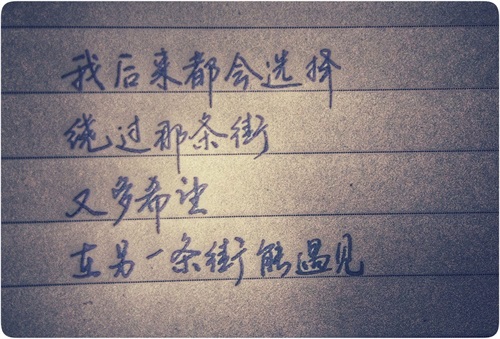 我后来都会选择
绕过那条街
又多希望
在另一条街能遇见